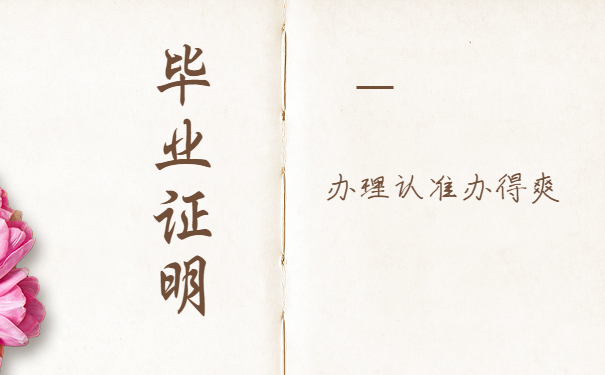 毕业证明
办理认准办得爽